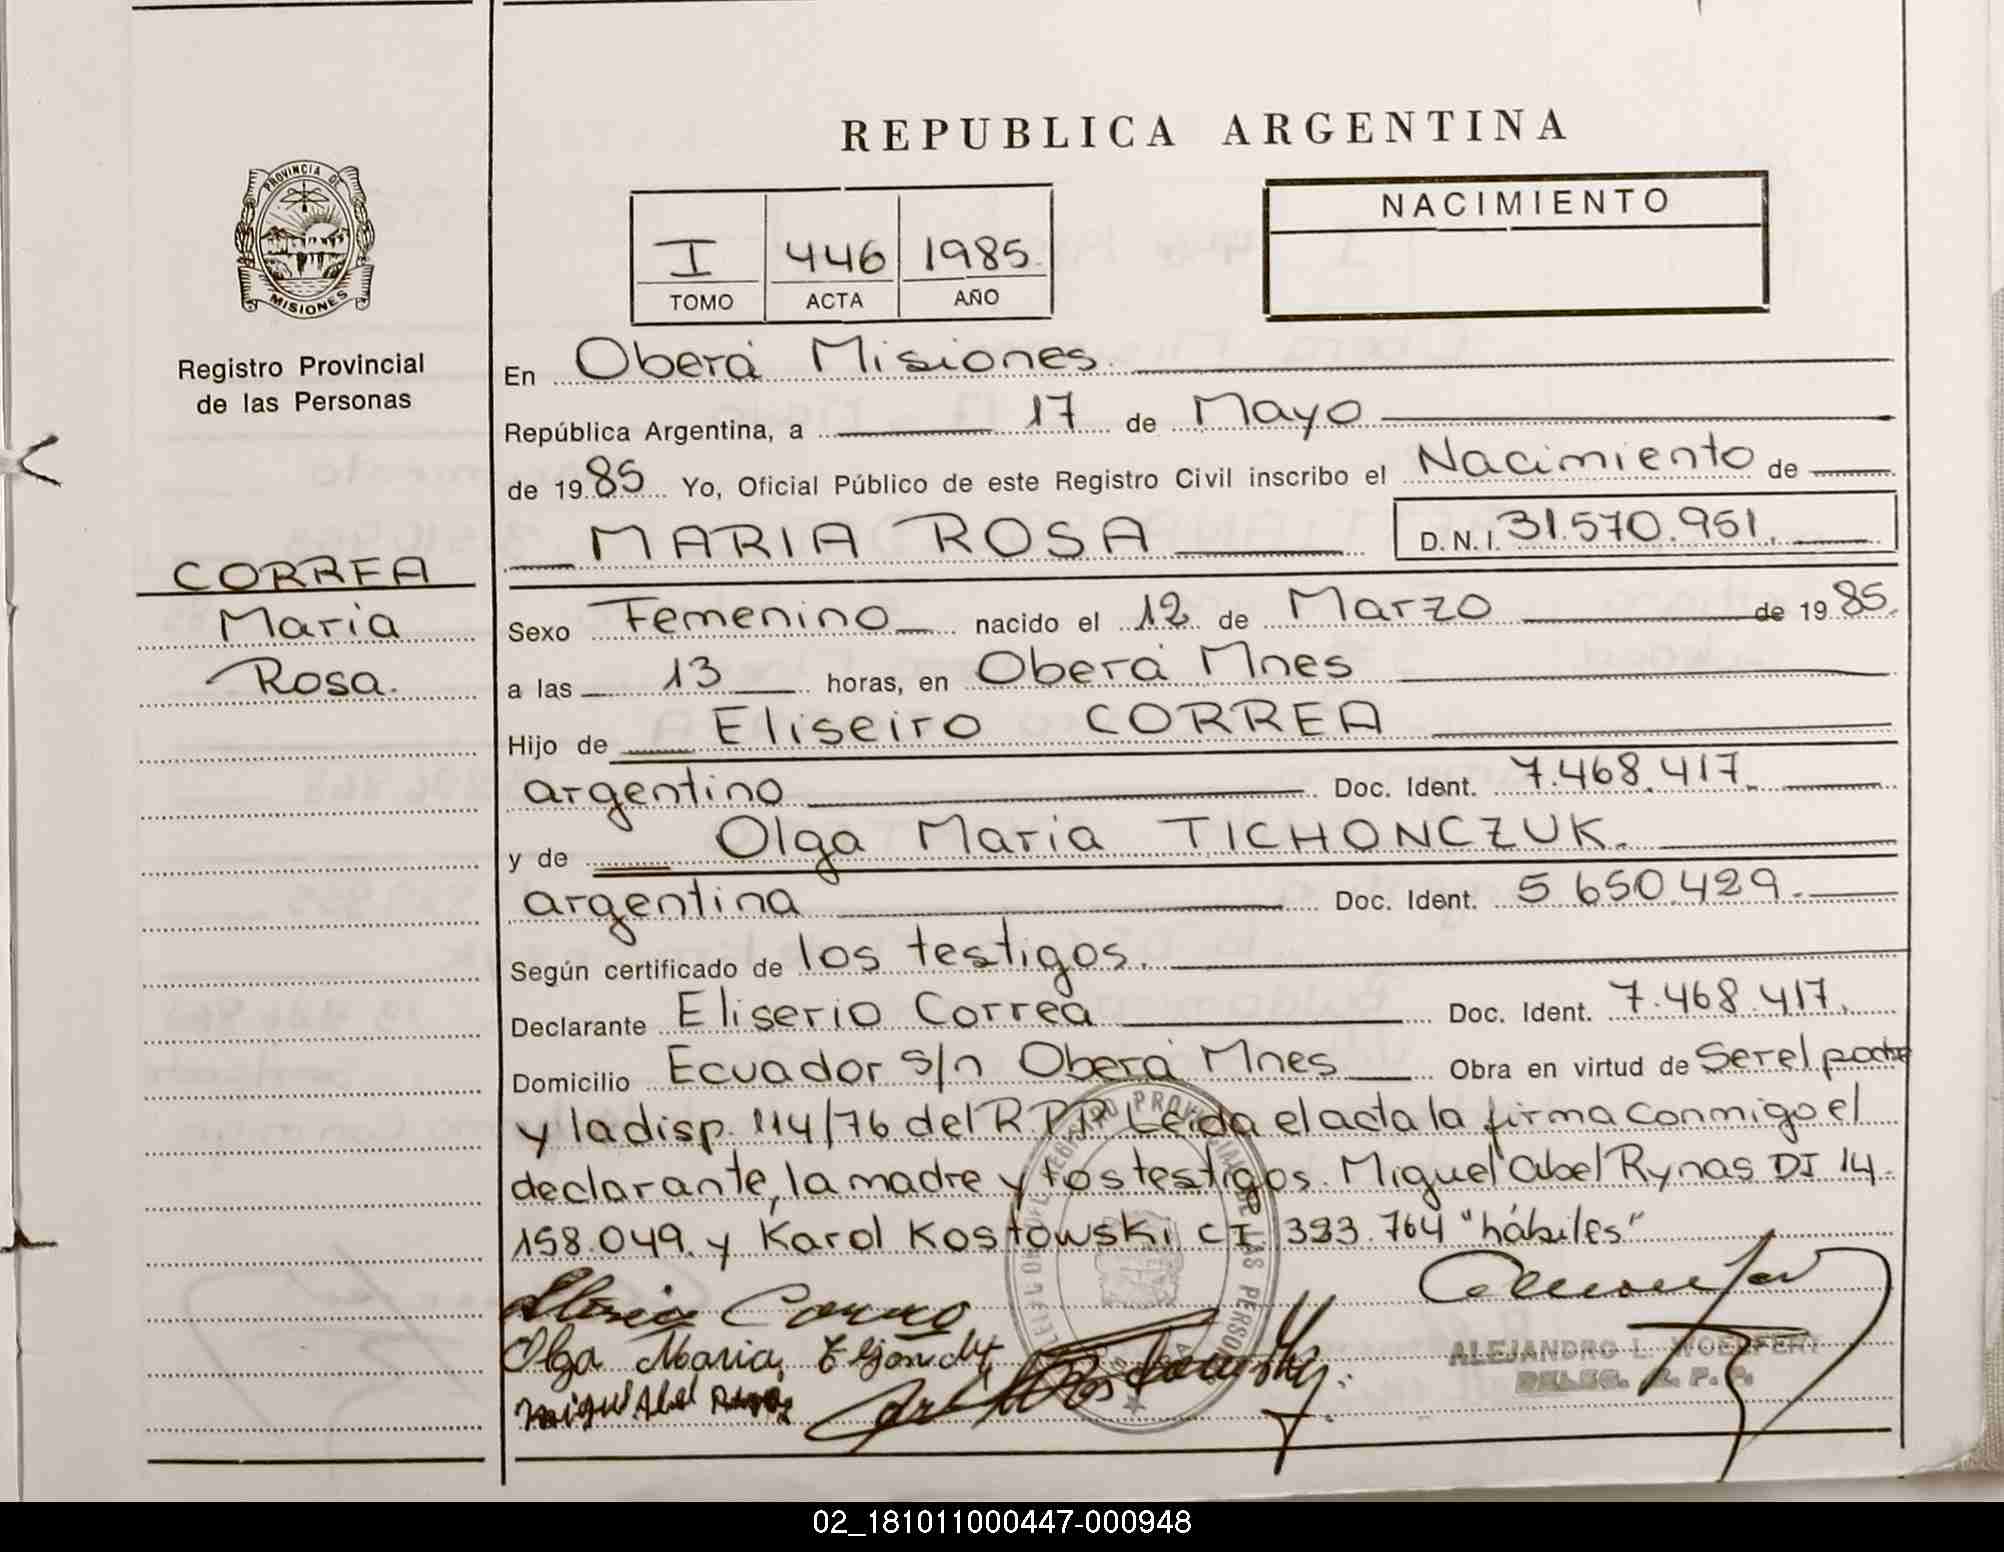 REPUBLICA ARGENTINA
PROVINCIA DE
MISIONES
Registro Provincial
de las Personas
CORREA
Maria
Rosa.
I 446 1985.
TOMO ACTA AÑO
NACIMIENTO
En Oberá Misiones.
República Argentina, a 17 de Mayo
de 1985 Yo, Oficial Público de este Registro Civil inscribo el Nacimiento de
MARIA ROSA D.N.I. 31.570.951.
Sexo Femenino nacido el 12 de Marzo de 1985.
a las 13 horas, en Oberá Mnes
Hijo de Eliseiro CORREA
argentino Doc. Ident. 7.468.417.
y de Olga Maria TICHONCZUK.
argentina Doc. Ident. 5.650.429.
Según certificado de los testigos.
Declarante Eliserio Correa Doc. Ident. 7.468.417.
Domicilio Ecuador s/n Oberá Mnes Obra en virtud de Ser el padre
y la disp. 114/76 del R.P.P. Leida el acta la firma conmigo el
declarante, la madre y los testigos. Miguel Abel Rynas DI 14.
158.049. y Karol Kostowski CI 393.764 "hábiles"
Correa
Olga Maria
Miguel Abel
ALEJANDRO L. WOELFERT
DELEG. R. P. P.
02_181011000447-000948